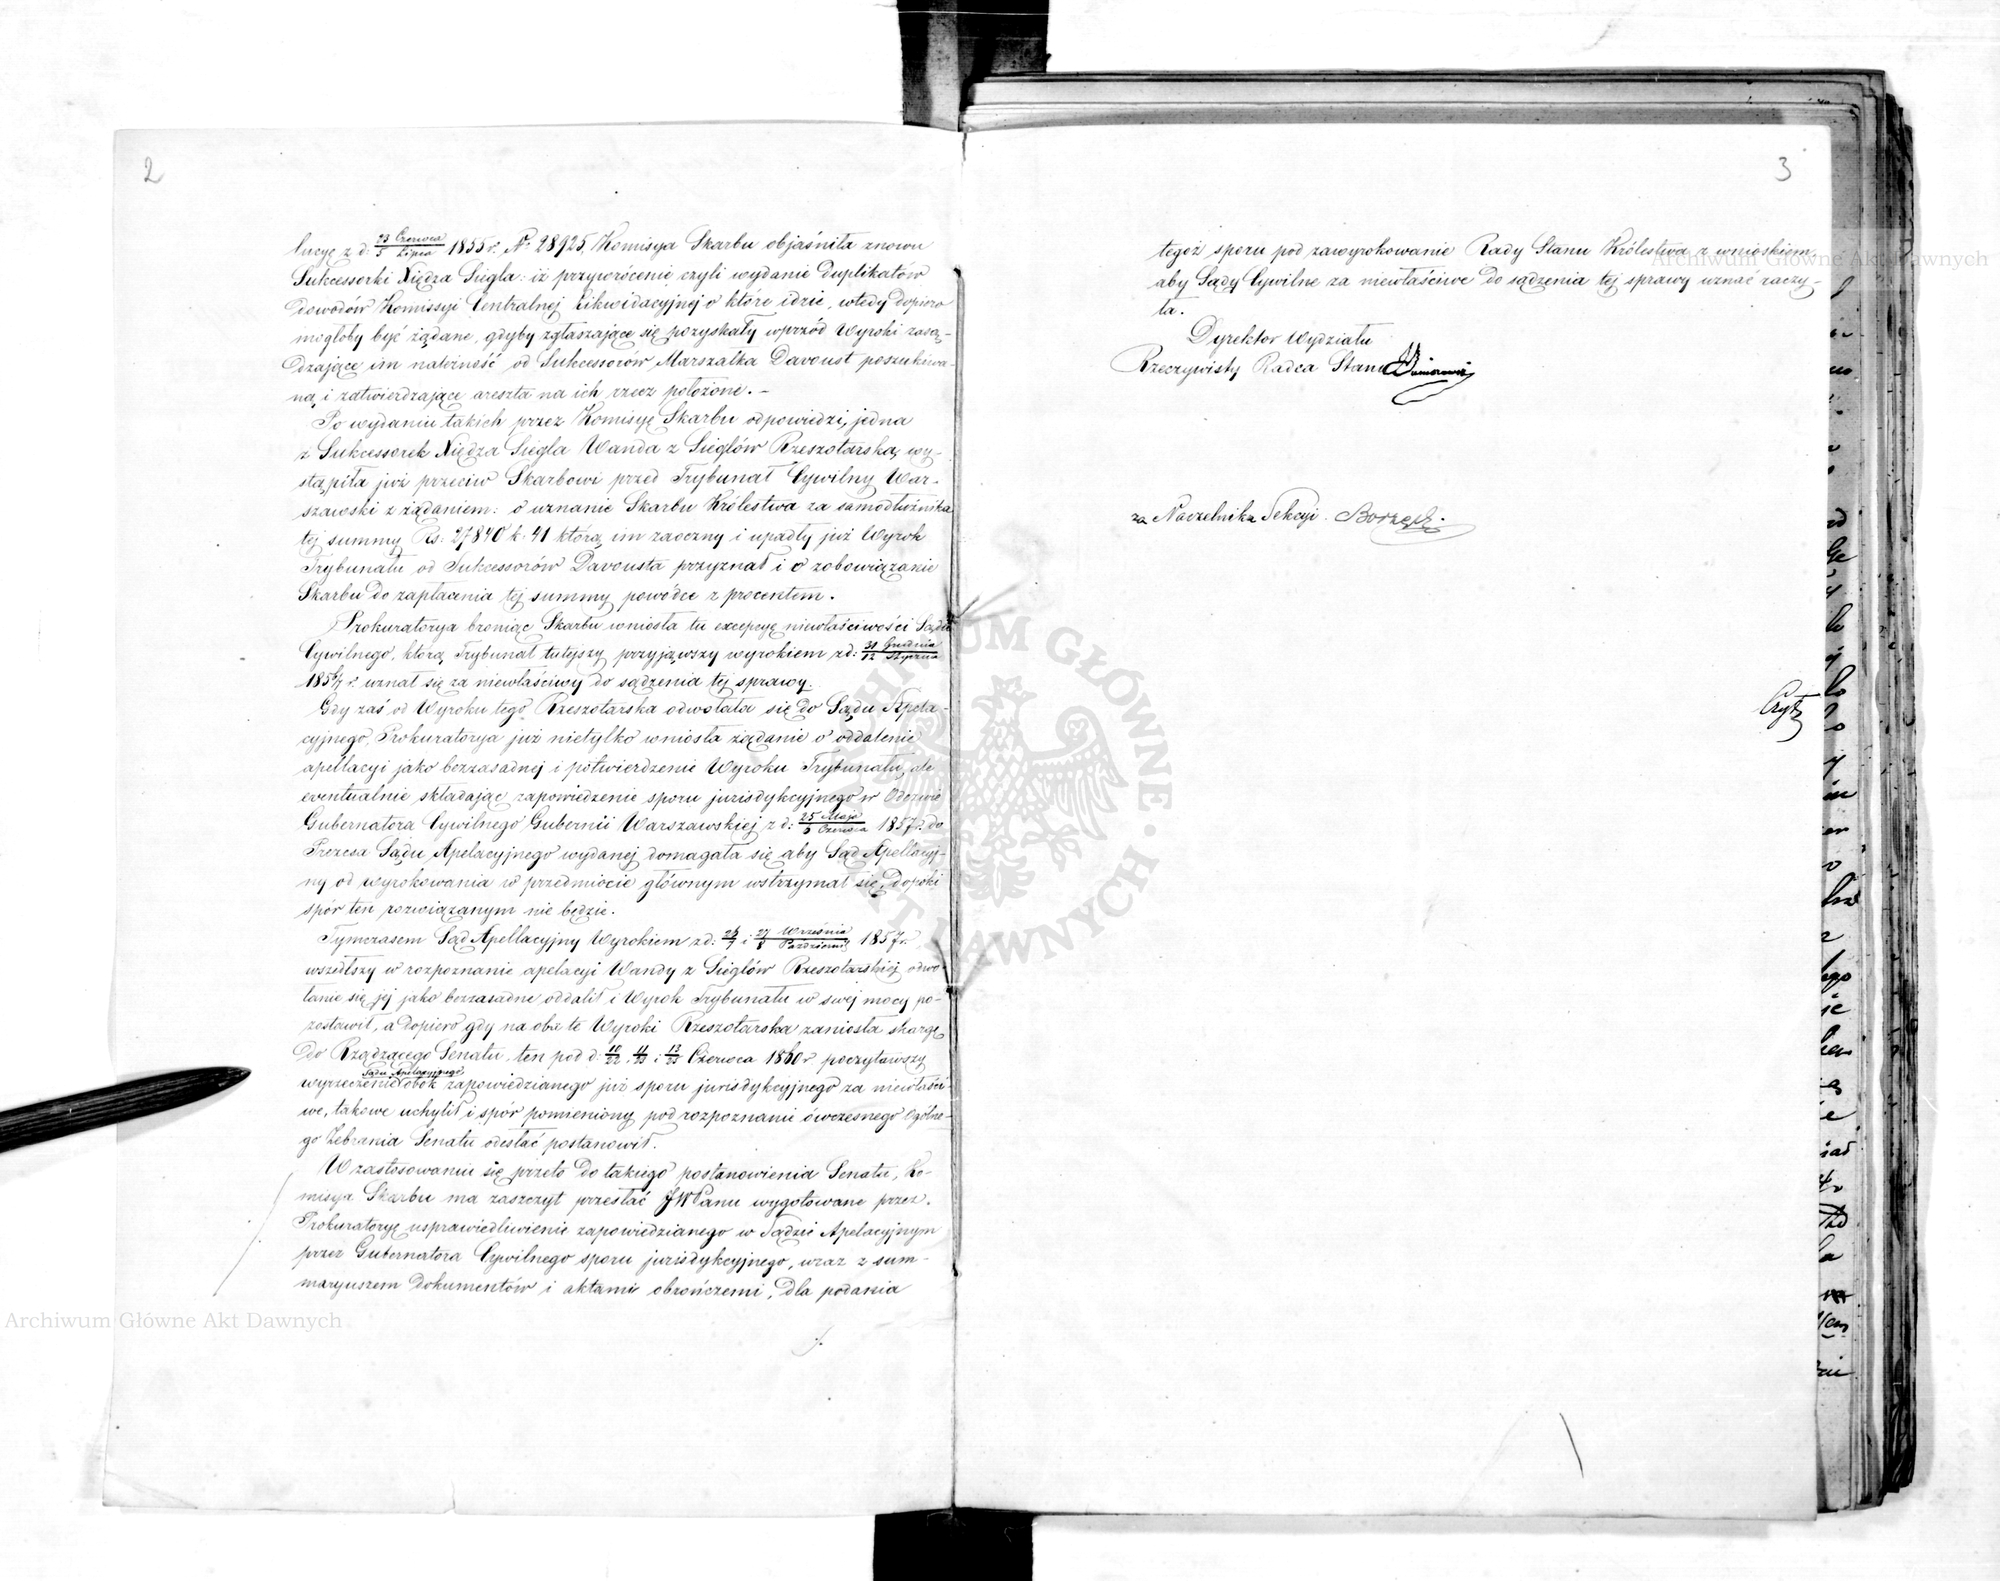 2
lucyę z d: 23 Czerwca / 5 Lipca 1855 r. Nr. 28925, Komisya Skarbu objaśniła znowu
Sukcessorki Xiędza Siegla: iż przywrócenie czyli wydanie duplikatów
dowodów Komissyi Centralnej Likwidacyjnej o które idzie, wtedy dopiero
mogłoby być żądane, gdyby zgłaszające się pozyskały wprzód Wyroki zasą-
dzające im należność od Sukcessorów Marszałka Davoust poszukiwa-
ną i zatwierdzające areszta na ich rzecz położone. –
Po wydaniu takich przez Komisyę Skarbu odpowiedzi, jedna
z Sukcessorek Xiędza Siegla Wanda z Sieglów Rzeszotarska, wy-
stąpiła już przeciw Skarbowi przed Trybunał Cywilny War-
szawski z żądaniem: o uznanie Skarbu Królestwa za samodłużnika
tej summy Rs: 27840 k. 41 którą im zaoczny i upadły już Wyrok
Trybunału od Sukcessorów Davousta przyznał i o zobowiązanie
Skarbu do zapłacenia tej summy powódce z procentem.
Prokuratorya broniąc Skarbu wniosła tu excepcyę niewłaściwości Sądu
Cywilnego, którą Trybunał tutejszy przyjąwszy wyrokiem z d: 31 Grudnia / 12 Stycznia
1856/7 r. uznał się za niewłaściwy do sądzenia tej sprawy.
Gdy zaś od Wyroku tego Rzeszotarska odwołała się do Sądu Apela-
cyjnego, Prokuratorya już nietylko wniosła żądanie o oddalenie
apellacyi jako bezzasadnej i potwierdzenie Wyroku Trybunału, ale
eventualnie składając zapowiedzenie sporu jurisdykcyjnego w Odezwie
Gubernatora Cywilnego Gubernii Warszawskiej z d: 25 Maja / 6 Czerwca 1857 r. do
Prezesa Sądu Apelacyjnego wydanej domagała się aby Sąd Apellacyj-
ny od wyrokowania w przedmiocie głównym wstrzymał się, dopóki
spór ten rozwiązanym nie będzie.
Tymczasem Sąd Apellacyjny Wyrokiem z d: 25/7 i 27 Września / 8 Październ: 1857 r.
wszedłszy w rozpoznanie apelacyi Wandy z Sieglów Rzeszotarskiej odwo-
łanie się jej jako bezzasadne oddalił i Wyrok Trybunału w swej mocy po-
zostawił, a dopiero gdy na oba te Wyroki Rzeszotarska zaniosła skargę
do Rządzącego Senatu, ten pod d: 10/22, 11/23 i 13/25 Czerwca 1860 r poczytawszy
Sądu Apelacyjnego
wyrzeczenie obok zapowiedzianego już sporu jurisdykcyjnego za niewłaści-
we, takowe uchylił i spór pomieniony pod rozpoznanie ówczesnego Ogólne-
go Zebrania Senatu odesłać postanowił.
W zastosowaniu się przeto do takiego postanowienia Senatu, Ko-
misya Skarbu ma zaszczyt przesłać JW Panu wygotowane przez
Prokuratoryę usprawiedliwienie zapowiedzianego w Sądzie Apelacyjnym
przez Gubernatora Cywilnego sporu jurisdykcyjnego, wraz z sum-
maryuszem dokumentów i aktami obrończemi, dla podania
3
tegoż sporu pod zawyrokowanie Rady Stanu Królestwa z wnioskiem,
aby Sądy Cywilne za niewłaściwe do sądzenia tej sprawy uznać raczy-
ła.
Dyrektor Wydziału
Rzeczywisty Radca Stanu
za Naczelnika Sekcyi.
Archiwum Główne Akt Dawnych
Archiwum Główne Akt Dawnych
ARCHIWUM GŁÓWNE AKT DAWNYCH